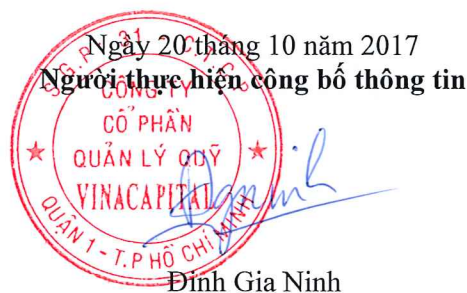 Ngày 20 tháng 10 năm 2017
Người thực hiện công bố thông tin
CÔNG TY
CỔ PHẦN
QUẢN LÝ QUỸ
VINACAPITAL
QUẬN 1 - T.P HỒ CHÍ MINH
Đinh Gia Ninh